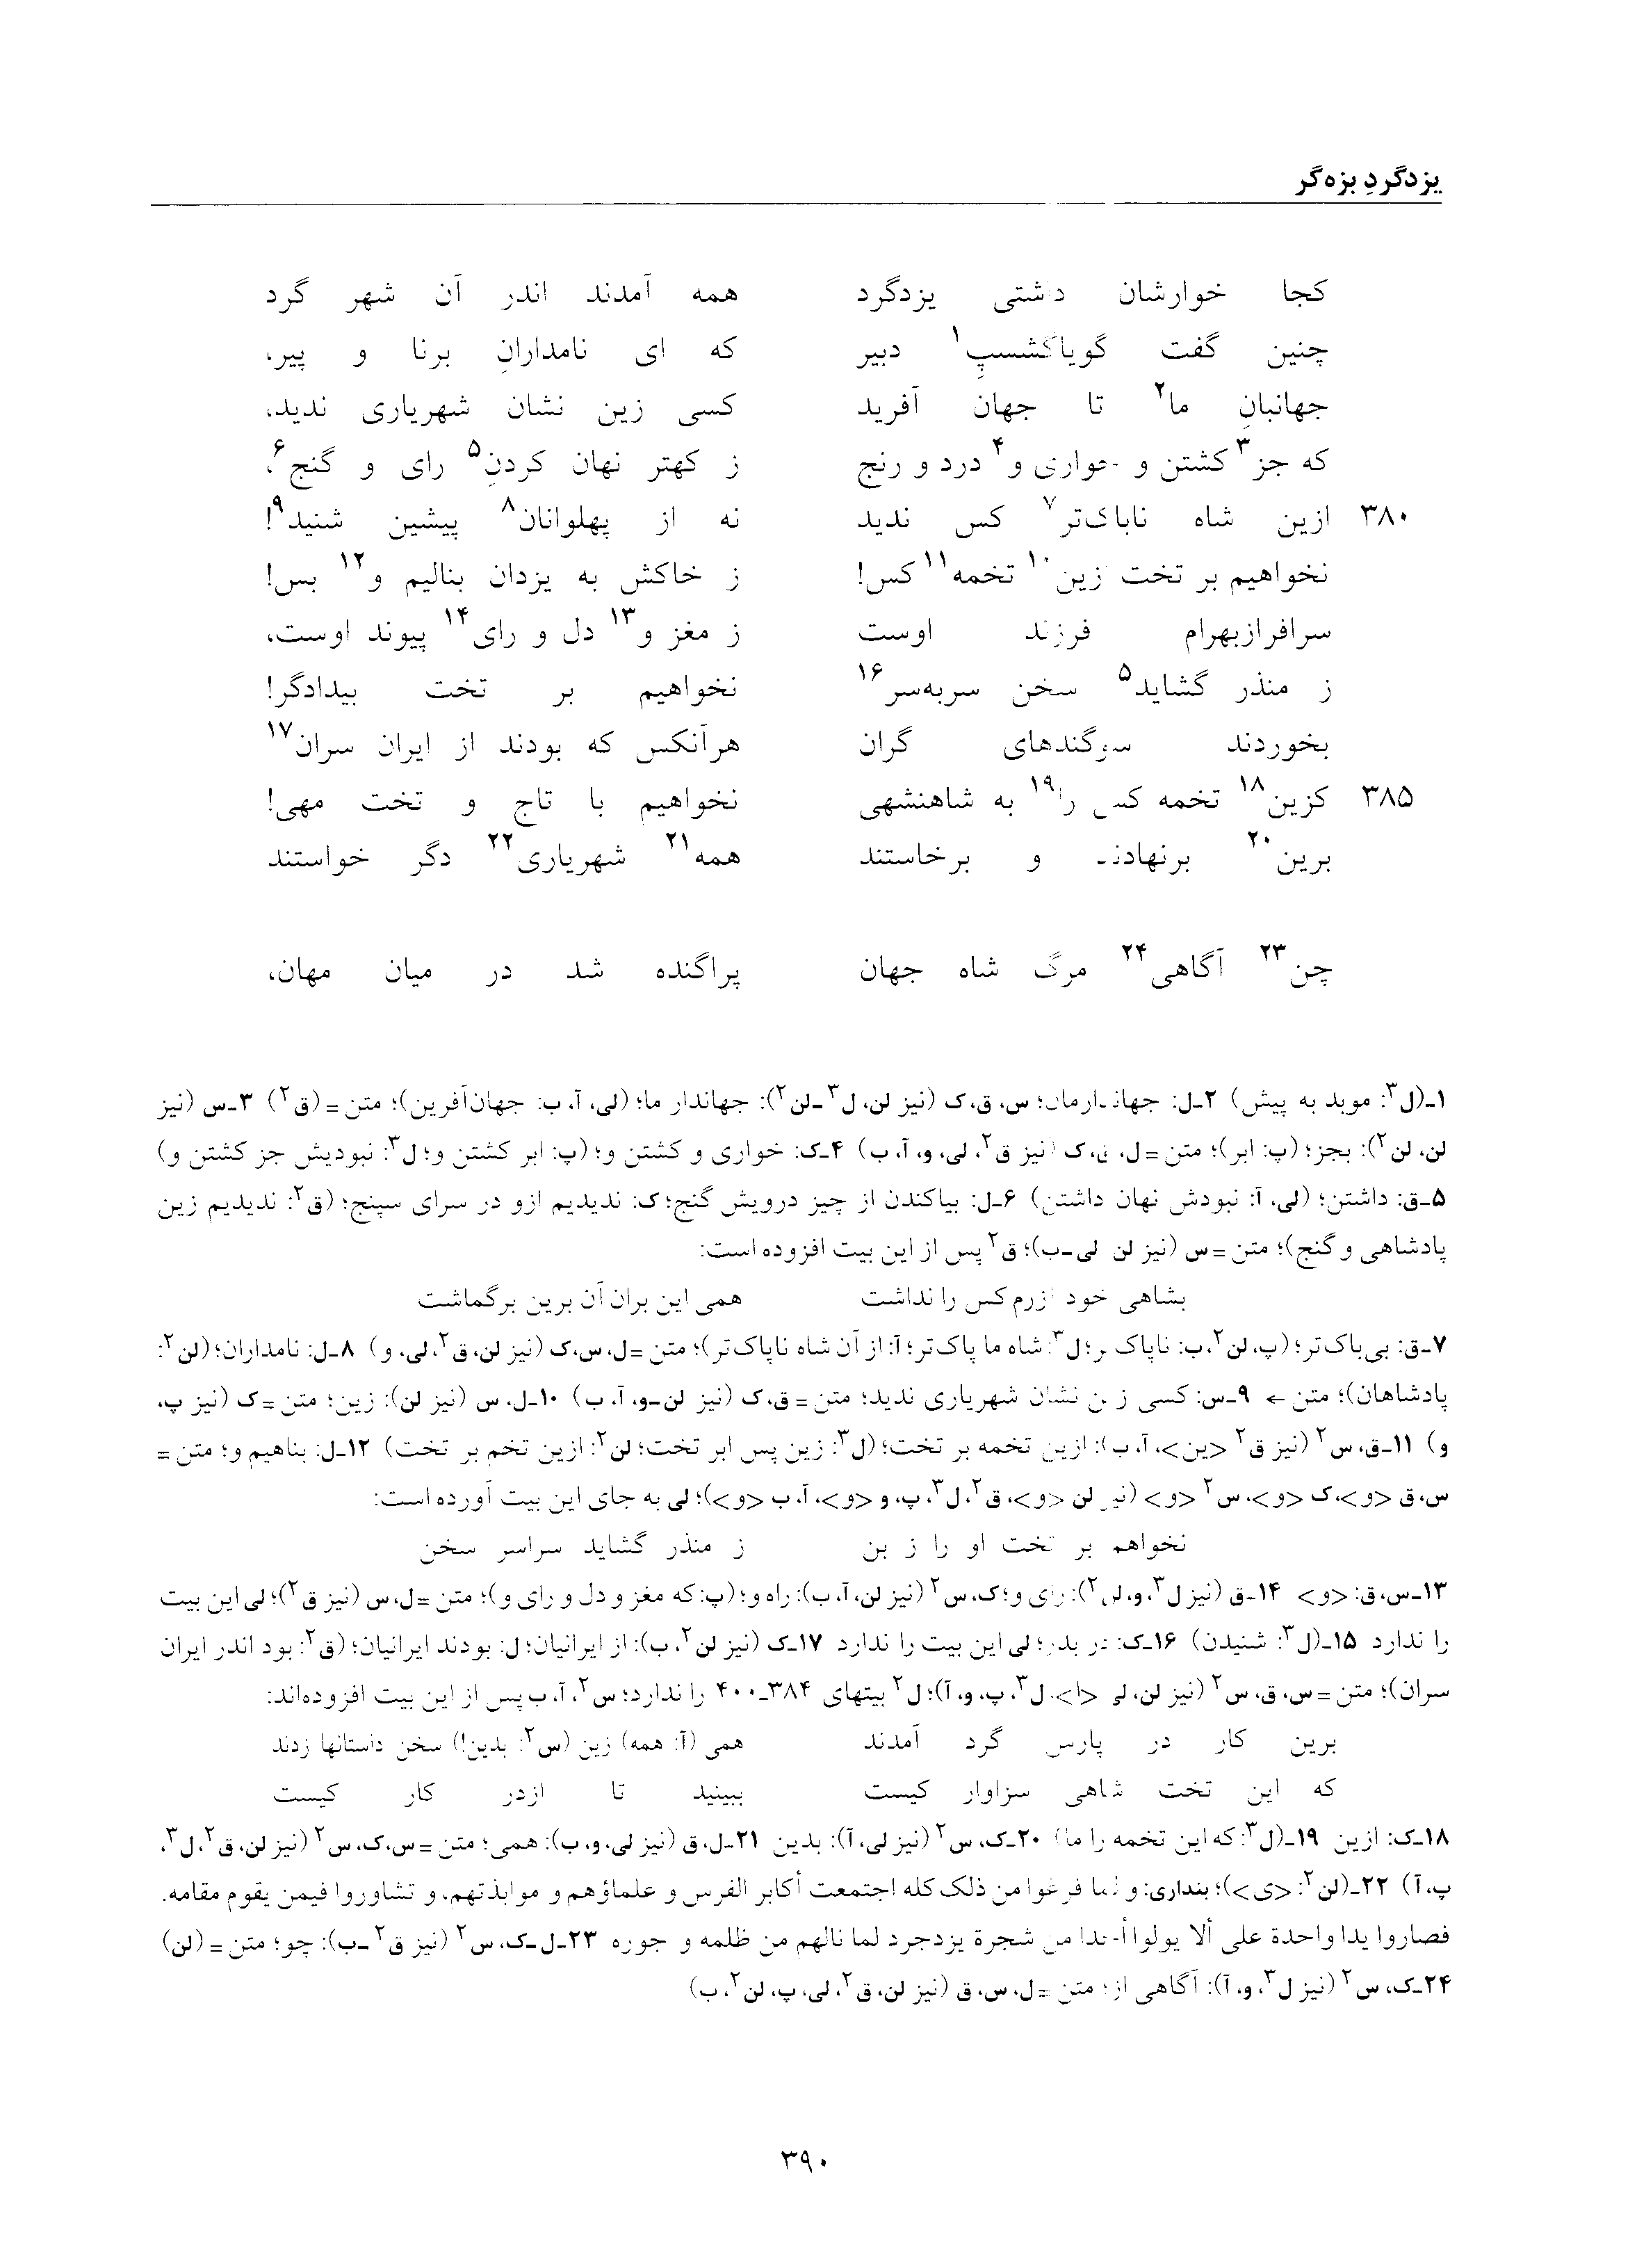 یزدگردِ بزه‌گر
کجا خوارشان داشتی یزدگرد همه آمدند اندر آن شهر گرد
چنین گفت گویاگشسپِ۱ دبیر که ای نامدارانِ برنا و پیر،
جهانبانِ ما۲ تا جهان آفرید کسی زین نشان شهریاری ندید،
که جز۳ کشتن و خواری و۴ درد و رنج ز کهتر نهان کردنِ۵ رای و گنج۶،
۳۸۰ ازین شاه ناپاک‌تر۷ کس ندید نه از پهلوانان۸ پیشین شنید۹!
نخواهیم بر تخت زین۱۰ تخمه۱۱ کس! ز خاکش به یزدان بنالیم و۱۲ بس!
سرافرازبهرام فرزند اوست ز مغز و۱۳ دل و رای۱۴ پیوند اوست،
ز منذر گشاید۵ سخن سربه‌سر۱۶ نخواهیم بر تخت بیدادگر!
بخوردند سوگندهای گران هرآنکس که بودند از ایران سران۱۷
۳۸۵ کزین۱۸ تخمه کس را۱۹ به شاهنشهی نخواهیم با تاج و تخت مهی!
برین۲۰ برنهادند و برخاستند همه۲۱ شهریاری۲۲ دگر خواستند
چن۲۳ آگاهی۲۴ مرگ شاه جهان پراگنده شد در میان مهان،
۱ـ(ل۳: موبد به پیش) ۲ـل: جهاندارمان؛ س، ق، ک (نیز لن، ل۳ـلن۲): جهاندار ما؛ (لی، آ، ب: جهان‌آفرین)؛ متن = (ق۲) ۳ـس (نیز
لن، لن۲): بجز؛ (پ: ابر)؛ متن = ل، ق، ک (نیز ق۲، لی، و، آ، ب) ۴ـک: خواری و کشتن و؛ (پ: ابر کشتن و؛ ل۳: نبودیش جز کشتن و)
۵ـق: داشتن؛ (لی، آ: نبودش نهان داشتن) ۶ـل: بیاکندن از چیز درویش گنج؛ ک: ندیدیم ازو در سرای سپنج؛ (ق۲: ندیدیم زین
پادشاهی و گنج)؛ متن = س (نیز لن لی-ب)؛ ق۲ پس از این بیت افزوده است:
بشاهی خود آزرم کس را نداشت همی این بران آن برین برگماشت
۷ـق: بی‌باک‌تر؛ (پ، لن۲، ب: ناپاک تر؛ ل۳: شاه ما پاک‌تر؛ آ: از آن شاه ناپاک‌تر)؛ متن = ل، س، ک (نیز لن، ق۲، لی، و) ۸ـل: نامداران؛ (لن۲:
پادشاهان)؛ متن ← ۹ـس: کسی زین نشان شهریاری ندید؛ متن = ق، ک (نیز لن-و، آ، ب) ۱۰ـل، س (نیز لن): زین؛ متن = ک (نیز پ،
و) ۱۱ـق، س۲ (نیز ق۲ <دین>، آ، ب): ازین تخمه بر تخت؛ (ل۳: زین پس ابر تخت؛ لن۲: ازین تخم بر تخت) ۱۲ـل: بناهیم و؛ متن =
س، ق <و>، ک <و>، س۲ <و> (نیز لن <و>، ق۲، ل۳، پ، و <و>، آ، ب <و>)؛ لی به جای این بیت آورده است:
نخواهم بر تخت او را ز بن ز منذر گشاید سراسر سخن
۱۳ـس، ق: <و> ۱۴ـق (نیز ل۳، و، لن۲): رای و؛ ک، س۲ (نیز لن، آ، ب): راه و؛ (پ: که مغز و دل و رای و)؛ متن = ل، س (نیز ق۲)؛ لی این بیت
را ندارد ۱۵ـ(ل۳: شنیدن) ۱۶ـک: در بدر؛ لی این بیت را ندارد ۱۷ـک (نیز لن۲، ب): از ایرانیان؛ ل: بودند ایرانیان؛ (ق۲: بود اندر ایران
سران)؛ متن = س، ق، س۲ (نیز لن، لی <ا>، ل۳، پ، و، آ)؛ ل۲ بیتهای ۳۸۴ـ۴۰۰ را ندارد؛ س۲، آ، ب پس از این بیت افزوده‌اند:
برین کار در پارس گرد آمدند همی (آ: همه) زین (س۲: بدین!) سخن داستانها زدند
که این تخت شاهی سزاوار کیست ببینید تا ازدر کار کیست
۱۸ـک: ازین ۱۹ـ(ل۳: که این تخمه را ما) ۲۰ـک، س۲ (نیز لی، آ): بدین ۲۱ـل، ق (نیز لی، و، ب): همی؛ متن = س، ک، س۲ (نیز لن، ق۲، ل۳،
پ، آ) ۲۲ـ(لن۲: <ی>)؛ بنداری: و لما فرغوا من ذلک کله اجتمعت أکابر الفرس و علماؤهم و موابذتهم، و تشاوروا فیمن یقوم مقامه.
فصاروا یدا واحدة علی ألا یولوا أحدا من شجرة یزدجرد لما نالهم من ظلمه و جوره ۲۳ـل-ک، س۲ (نیز ق۲-ب): چو؛ متن = (لن)
۲۴ـک، س۲ (نیز ل۳، و، آ): آگاهی از؛ متن = ل، س، ق (نیز لن، ق۲، لی، پ، لن۲، ب)
۳۹۰